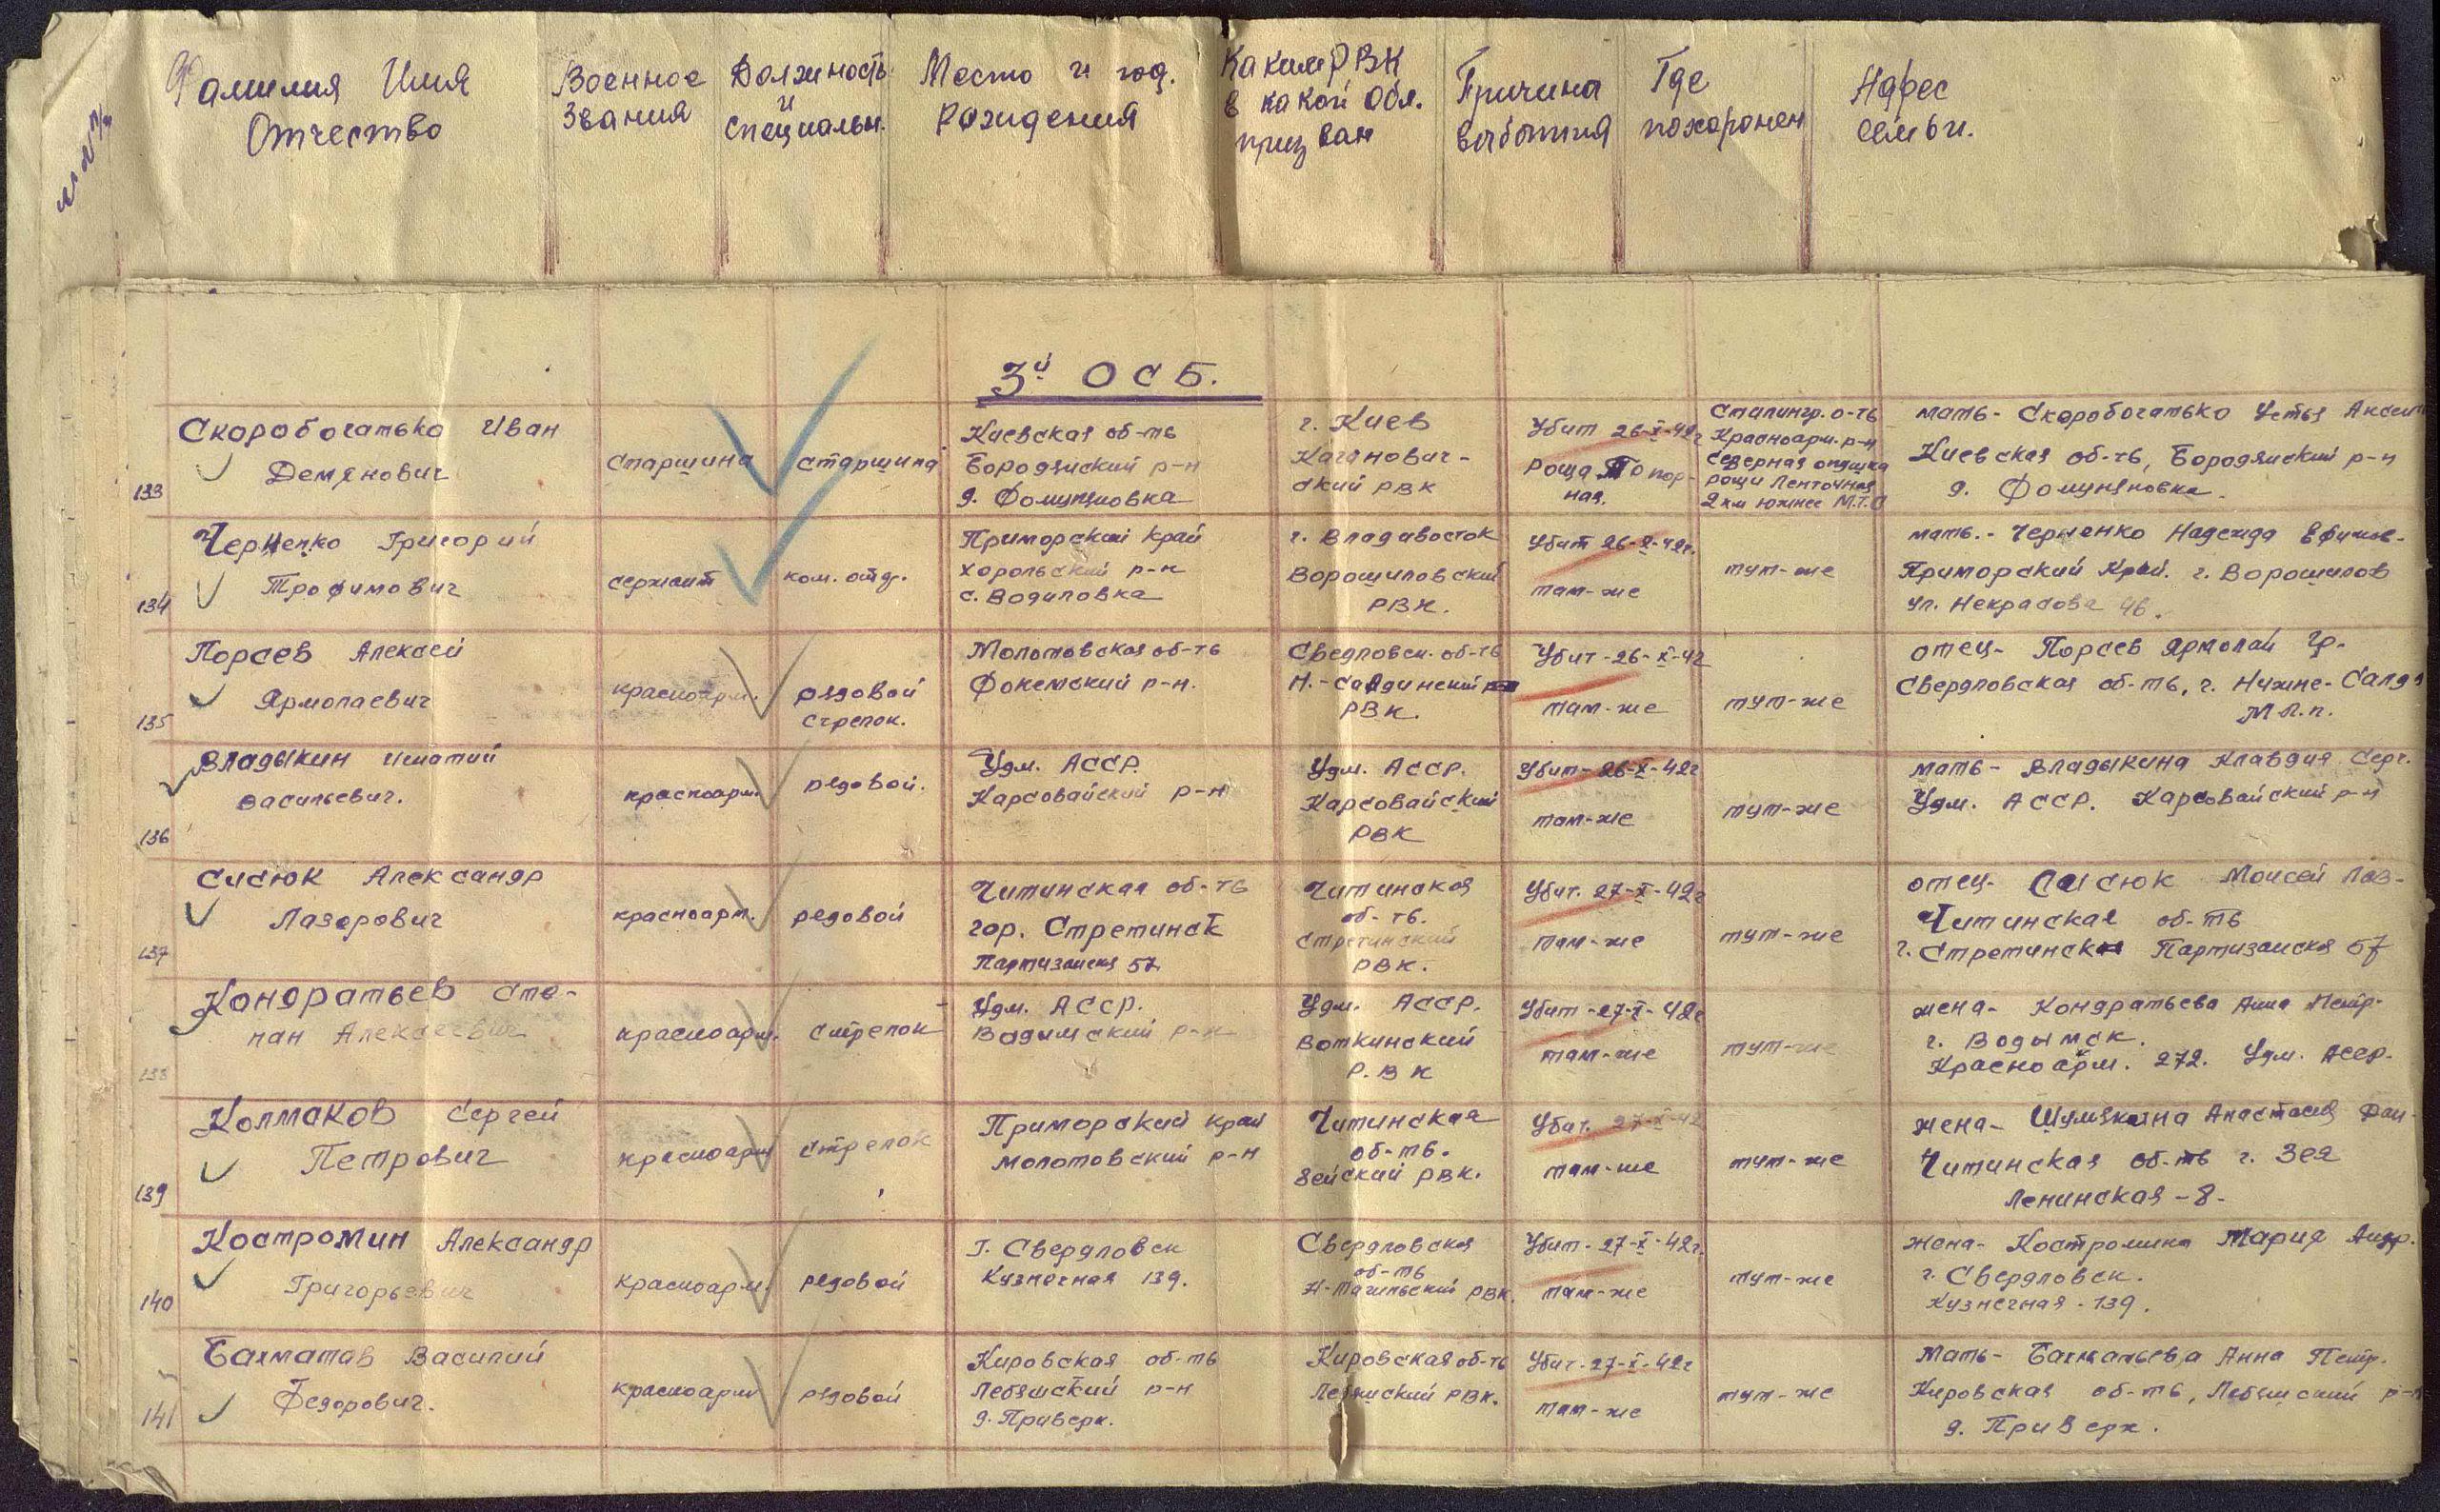 Фамилия Имя
Отчество
Военное
Звания
Должность
и
специальн.
Место и год.
Рождения
Каким РВК
в какой обл.
призван
Причина
выбытия
Где
похоронен
Адрес
семьи.
3й ОСБ.
133
Скоробогатько Иван
Демянович
Старшина
старшина
Киевская об-ть
Бородянский р-н
д. Фомуняновка
г. Киев
Каганович-
ский РВК
Убит 26-X-42г
роща Топор-
ная.
Сталингр. о-ть
Красноарм. р-н
северная опушка
рощи Ленточная
2 км южнее М.Т.Ф
мать- Скоробогатько Устья Аксен
Киевская об-ть, Бородянский р-н
д. Фомуняновка.
134
Черненко Григорий
Трофимович
сержант
ком. отд.
Приморский край
Хорольский р-н
с. Водиловка
г. Владавосток
Ворошиловский
РВК.
Убит 26-X-42г.
там-же
тут-же
мать.- Черненко Надежда Ефимов-
Приморский Край. г. Ворошилов
ул. Некрасова 46.
135
Порсев Алексей
Ярмолаевич
красноарм.
рядовой
стрелок.
Молотовская об-ть
Фокемский р-н.
Свердловск. об-ть
Н.-Салдинский
РВК.
Убит-26-X-42
там-же
тут-же
отец- Порсев Ярмолай Гр.
Свердловская об-ть, г. Нижне-Салда
136
Владыкин Игнатий
Васильевич.
красноарм.
рядовой.
Удм. АССР.
Карсовайский р-н
Удм. АССР.
Карсовайский
РВК
Убит-26-X-42г
там-же
тут-же
мать- Владыкина Клавдия Серг.
Удм. АССР. Карсовайский р-н
137
Сысюк Александр
Лазорович
красноарм.
рядовой
Читинская об-ть
гор. Стретинск
Партизанская 57.
Читинская
об-ть.
Стретинский
РВК.
Убит. 27-X-42г
там-же
тут-же
отец- Сысюк Моисей Лаз-
Читинская об-ть
г. Стретинск Партизанская 57
138
Кондратьев Сте-
пан Алексеевич
красноарм.
стрелок
Удм. АССР.
Вадимский р-н
Удм. АССР.
Воткинский
Р.ВК
Убит-27-X-42г
там-же
тут-же
жена- Кондратьева Анна Петр-
г. Водымск.
Красноарм. 272. Удм. АССР.
139
Колмаков Сергей
Петрович
красноарм
стрелок
Приморский край
Молотовский р-н
Читинская
об-ть.
Зейский РВК.
Убит. 27-X-42
там-же
тут-же
жена- Шумякина Анастасия Дан-
Читинская об-ть г. Зея
Ленинская-8-
140
Костромин Александр
Григорьевич
красноарм.
рядовой
г. Свердловск
Кузнечная 139.
Свердловская
об-ть
Н-Тагильский РВК.
Убит-27-X-42г.
там-же
тут-же
жена- Костромина Мария Андр.
г. Свердловск.
Кузнечная-139.
141
Бахматов Василий
Федорович.
красноарм
рядовой
Кировская об-ть
Лебяжский р-н
д. Приверх.
Кировская об-ть
Лебяжский РВК.
Убит-27-X-42г
там-же
тут-же
Мать- Бахматьева Анна Петр.
Кировская об-ть, Лебяжский р-н
д. Приверх.